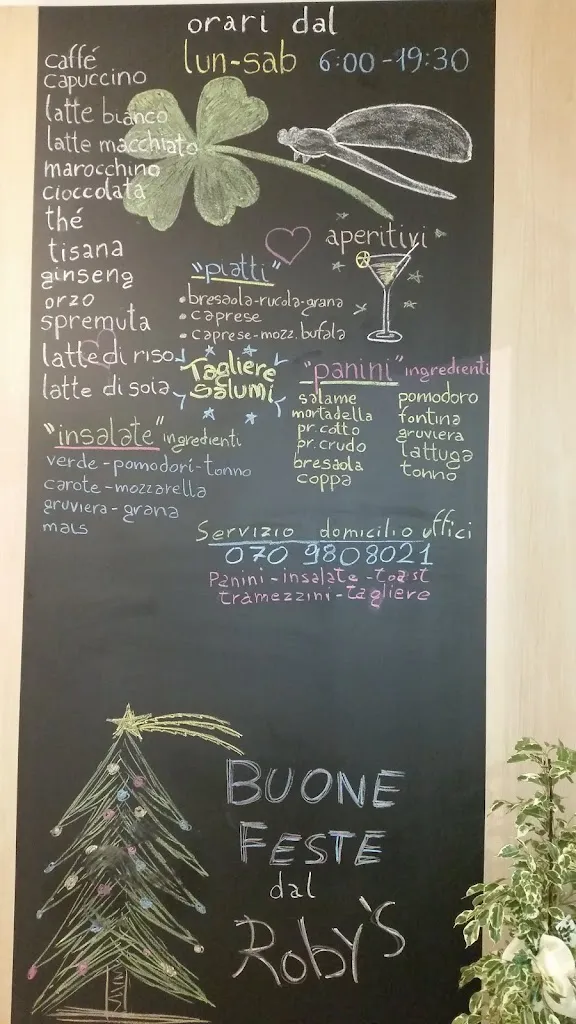 orari dal
lun-sab 6:00-19:30
caffé
capuccino
latte bianco
latte macchiato
marocchino
cioccolata
thé
tisana
ginseng
orzo
spremuta
latte di riso
latte di soia
aperitivi
"piatti"
• bresaola-rucola-grana
• caprese
• caprese-mozz. bufala
Tagliere
Salumi
"panini" ingredienti
salame
mortadella
pr. cotto
pr. crudo
bresaola
coppa
pomodoro
fontina
gruviera
lattuga
tonno
"insalate" ingredienti
verde-pomodori-tonno
carote-mozzarella
gruviera-grana
mais
Servizio domicilio uffici
070 9808021
Panini-insalate-toast
tramezzini-tagliere
BUONE
FESTE
dal
ROBY'S